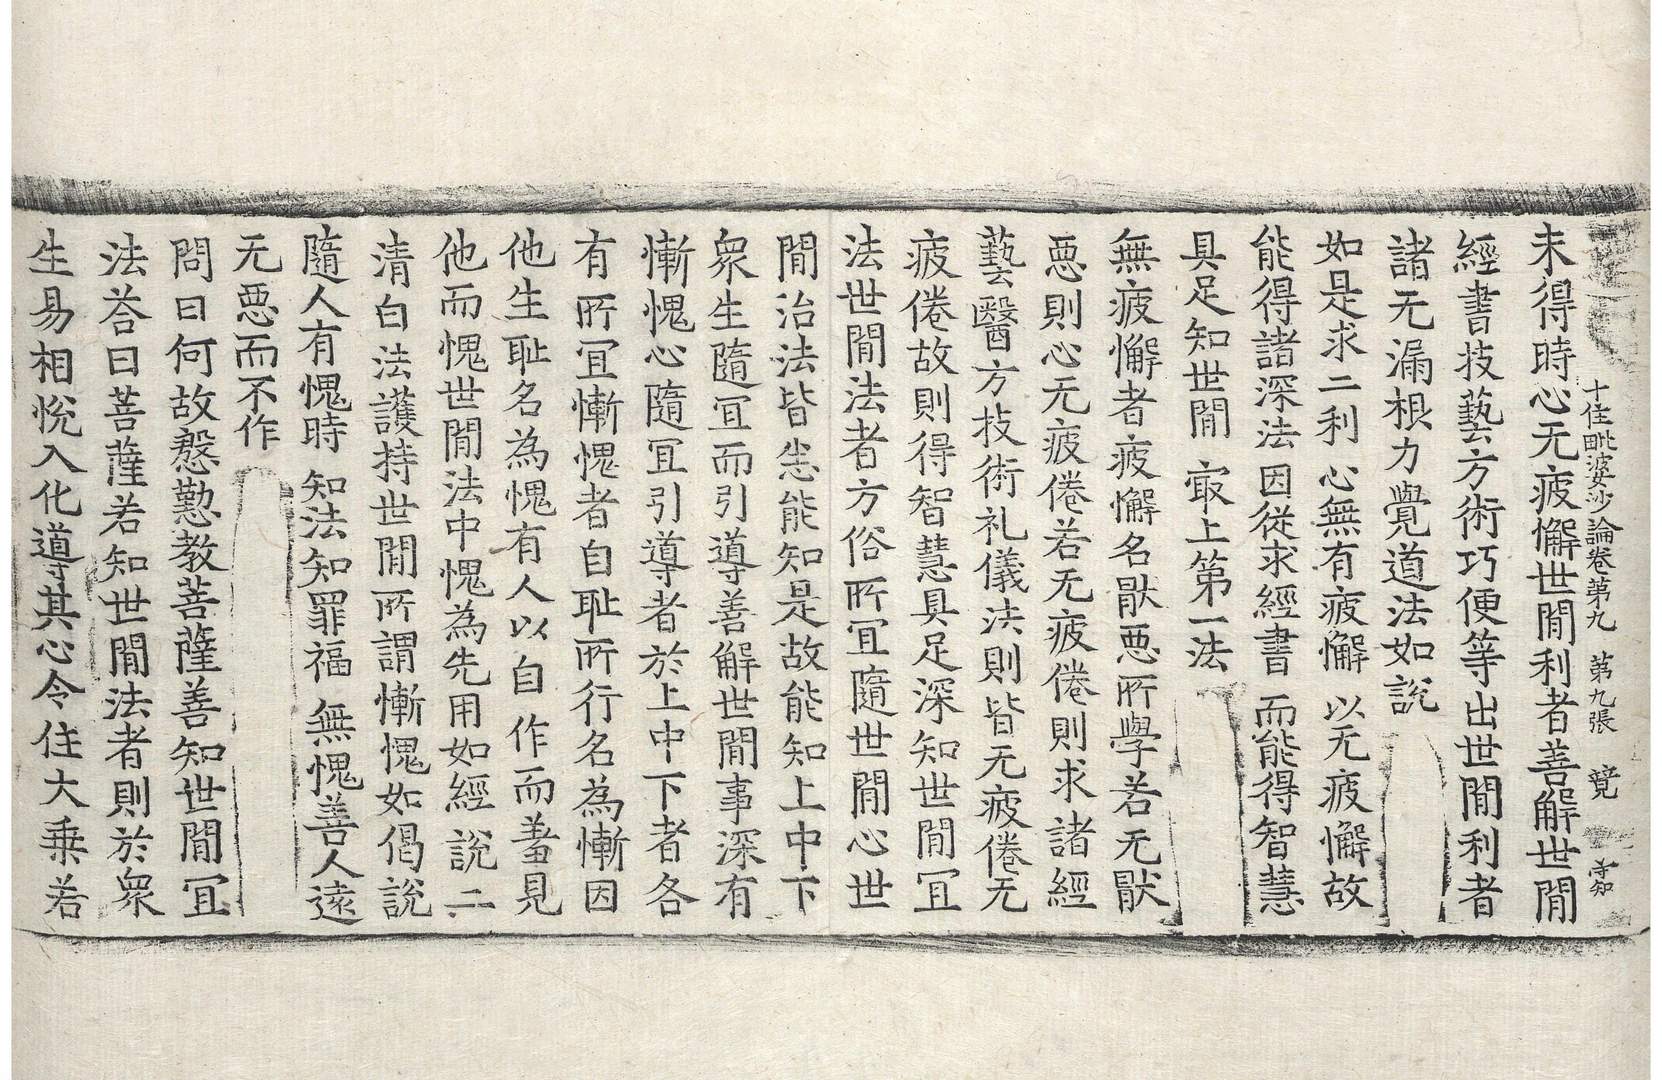 十住毗婆沙論卷第九 第九張 競
未得時心无疲懈世閒利者善解世閒
經書技藝方術巧便等出世閒利者
諸无漏根力覺道法如說
如是求二利 心無有疲懈 以无疲懈故
能得諸深法 因從求經書 而能得智慧
具足知世閒 㝡上第一法
無疲懈者疲懈名猒惡所學若无猒
惡則心无疲倦若无疲倦則求諸經
藝醫方技術礼儀法則皆无疲倦无
疲倦故則得智慧具足深知世閒冝
法世閒法者方俗所冝隨世閒心世
閒治法皆悉能知是故能知上中下
衆生隨冝而引導善解世閒事深有
慚愧心隨冝引導者於上中下者各
有所冝慚愧者自耻所行名為慚因
他生耻名為愧有人以自作而羞見
他而愧世閒法中愧為先用如經說二
清白法護持世閒所謂慚愧如偈說
隨人有愧時 知法知罪福 無愧善人遠
无惡而不作
問曰何故慇懃教菩薩善知世閒冝
法荅曰菩薩若知世閒法者則於衆
生易相悅入化導其心令住大乗若